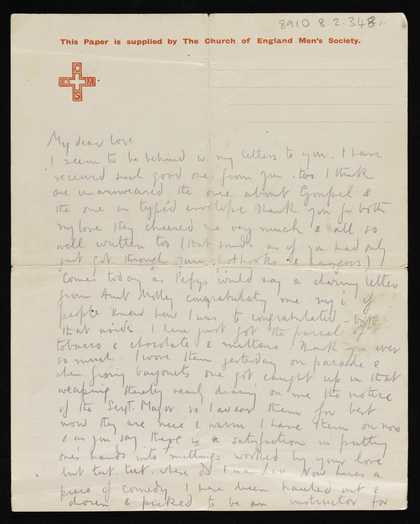 8910 8.2.348.
This Paper is supplied by The Church of England Men's Society.
C E M S
My dear Love
I seem to be behind in my letters to you. I have
received such good ones from you too I think
are unanswered the one about Gospel &
the one in typed envelope thank you for both
my love they cheered me very much & all so
well written too (that sounds as if you had only
just got through your pothooks & hangers)
"Comes today" as Pepys would say a charming letter
from Aunt Molly congratulating me my; if
people knew how I was to be congratulated -
that aside. I have just got the parcel of
tobacco & chocolate & mittens. Thank you ever
so much. I wore them yesterday on parade &
when fixing bayonets one got caught up in that
weapon thereby nearly drawing on me the notice
of the Sergt. Major so I and them for best
now they are nice & warm I have them on now
& as you say there is a satisfaction in putting
ones hands into mittens worked by your love
but tut tut where did I Now here's a
piece of comedy I have been hauled out &
chosen & picked to be an instructor for